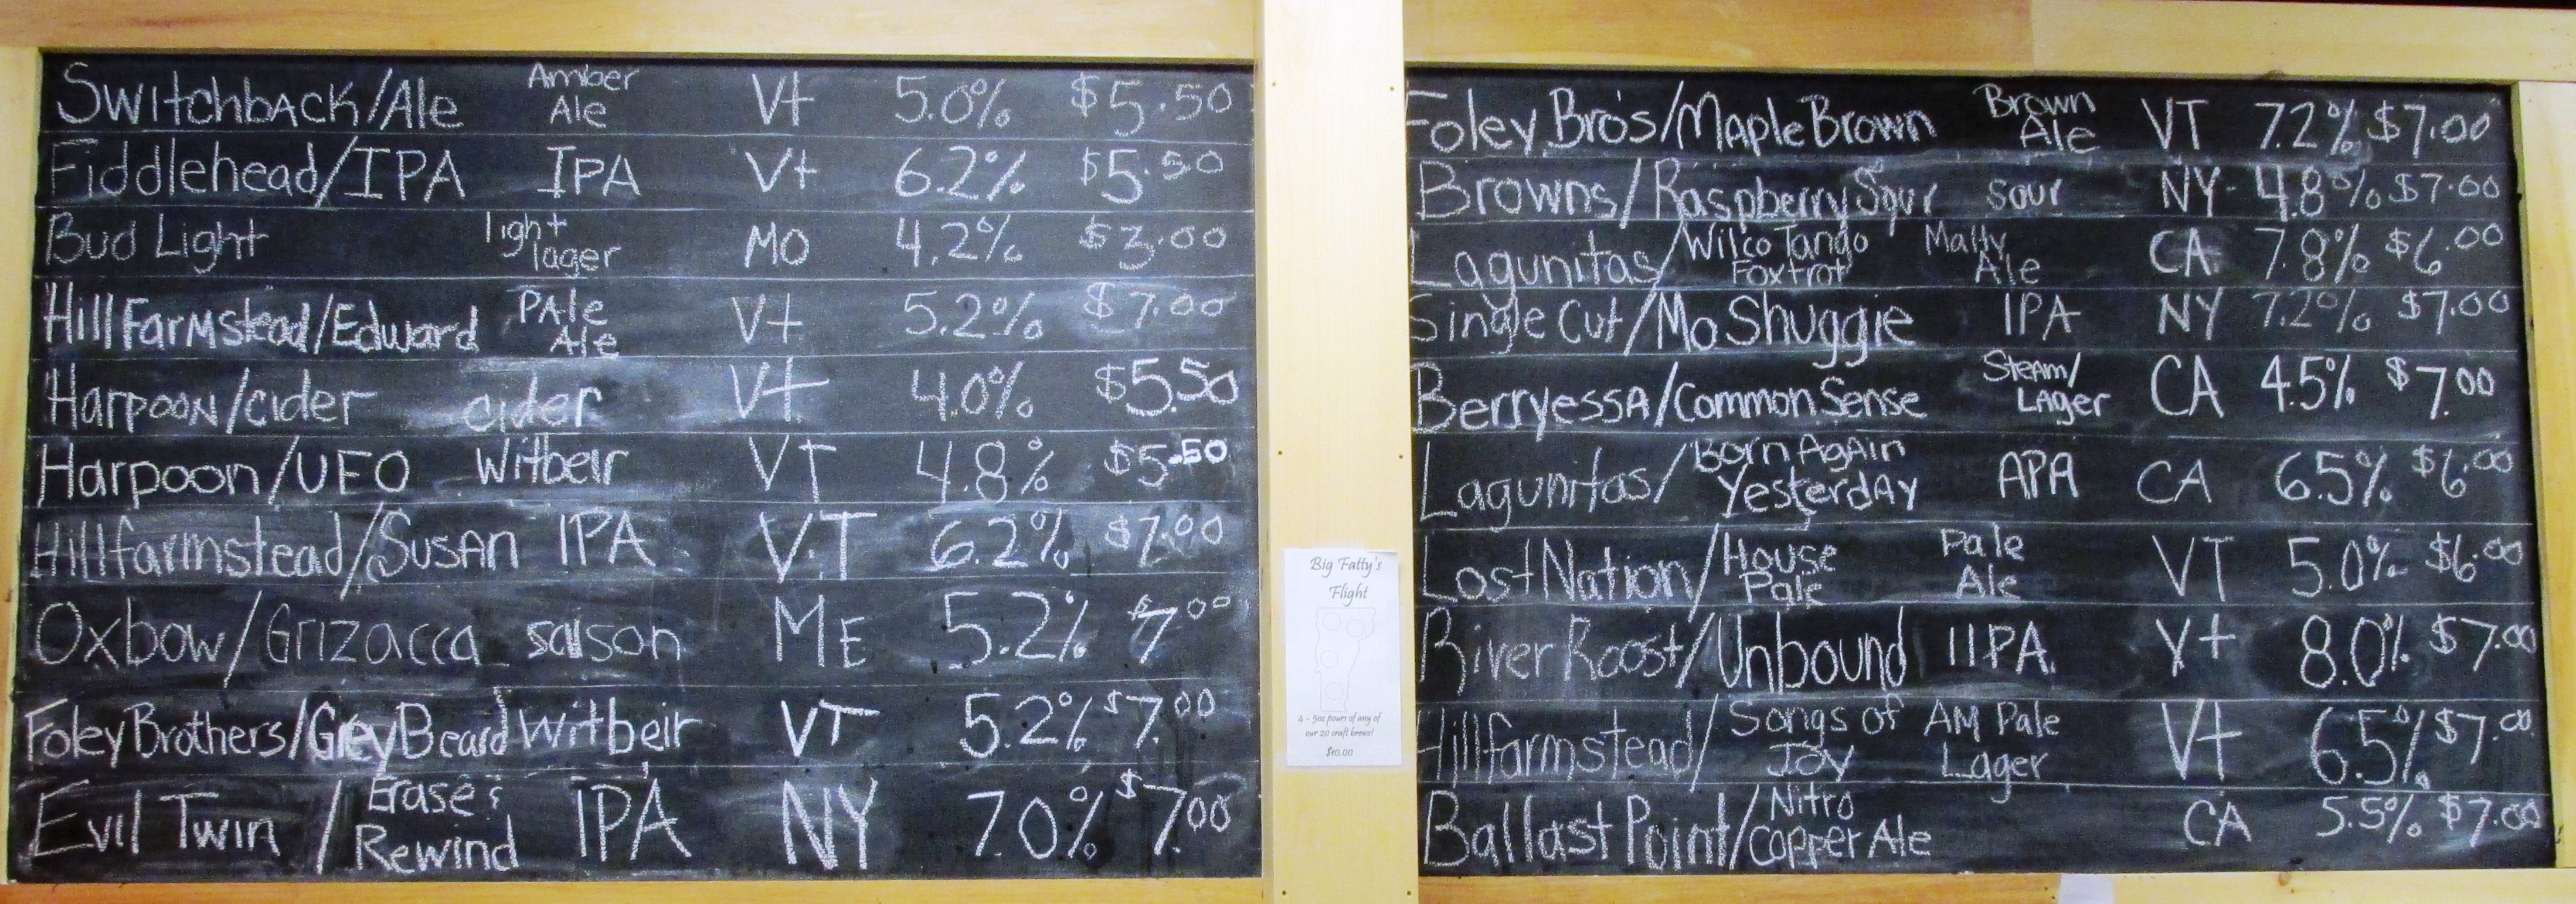 Switchback/Ale Amber Ale Vt 5.0% $5.50
Fiddlehead/IPA IPA Vt 6.2% $5.50
Bud Light light lager MO 4.2% $3.00
Hill Farmstead/Edward Pale Ale Vt 5.2% $7.00
Harpoon/cider cider Vt 4.0% $5.50
Harpoon/UFO Witbeir VT 4.8% $5.50
Hillfarmstead/Susan IPA VT 6.2% $7.00
Oxbow/Grizacca saison ME 5.2% $7.00
Foley Brothers/Grey Beard Witbeir VT 5.2% $7.00
Evil Twin / Erase & Rewind IPA NY 7.0% $7.00
Big Fatty's
Flight
4 - 5oz pours of any of
our 20 craft brews!
$10.00
Foley Bro's/Maple Brown Brown Ale VT 7.2% $7.00
Browns/Raspberry Sour Sour NY 4.8% $7.00
Lagunitas/Wilco Tango Foxtrot Malty Ale CA 7.8% $6.00
Single Cut/Mo Shuggie IPA NY 7.2% $7.00
Berryessa/Common Sense Steam/Lager CA 4.5% $7.00
Lagunitas/Born Again Yesterday APA CA 6.5% $6.00
Lost Nation/House Pale Pale Ale VT 5.0% $6.00
River Roost/Unbound IIPA Vt 8.0% $7.00
Hillfarmstead/Songs of Joy AM Pale Lager Vt 6.5% $7.00
Ballast Point/Nitro Copper Ale CA 5.5% $7.00